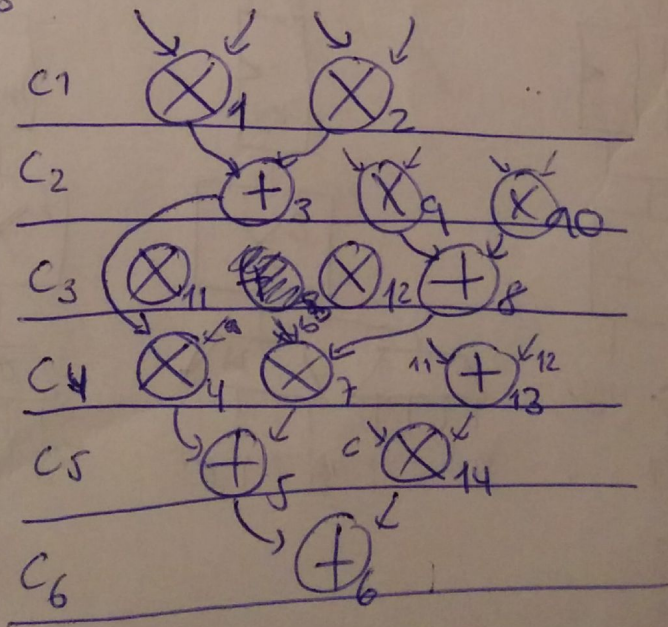 C1 × 1 × 2
C2 + 3 × 9 × 10
C3 × 11 × 12 + 8
C4 × 4 a × 7 b 11 + 12 13
C5 + 5 c × 14
C6 + 6